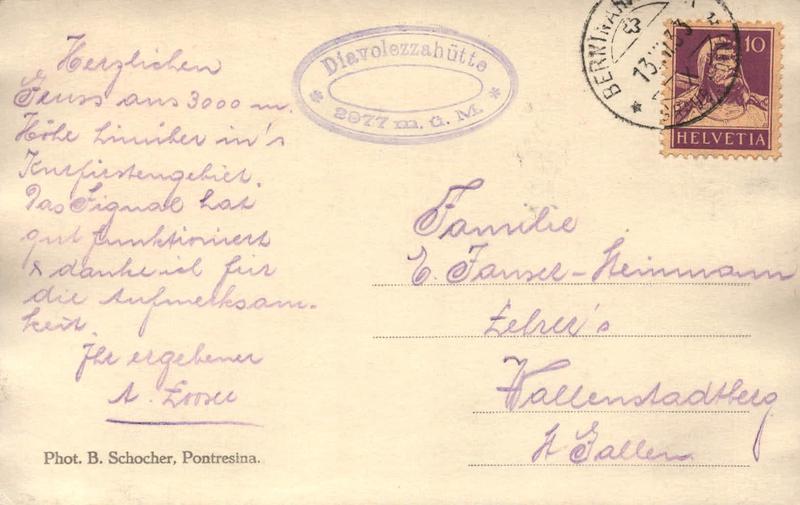 Herzlichen
Gruss aus 3000 m.
Höhe hinüber in's
Kurfirstengebiet.
Das Signal hat
gut funktioniert
& danke ich für
die Aufmerksam-
keit.
Ihr ergebener
A. Looser
Phot. B. Schocher, Pontresina.
Diavolezzahütte
2977 m. ü. M.
BERNINA
13. 33
10
HELVETIA
Familie
E. Janser-Heinmann
Wallenstadtberg
St Gallen